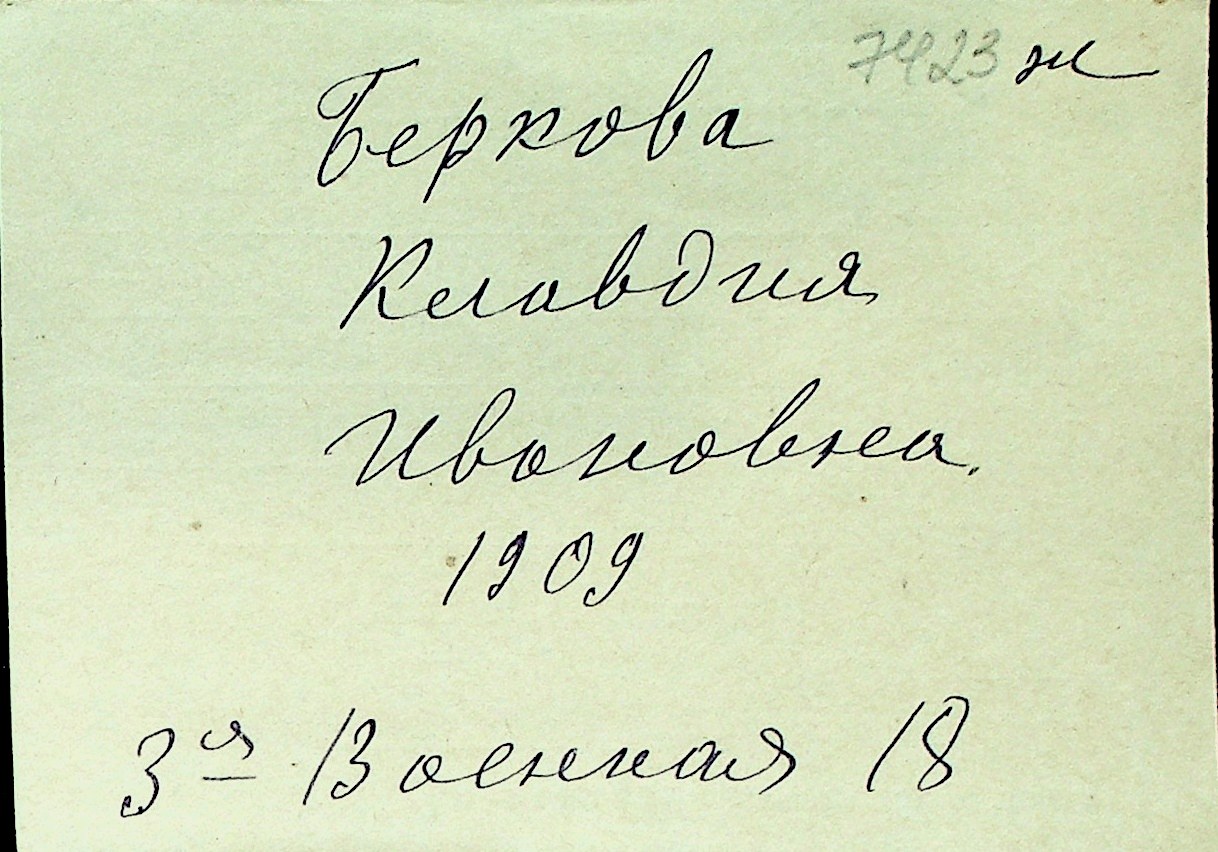 7423 ж
Беркова
Клавдия
Ивановна.
1909
3я Военная 18